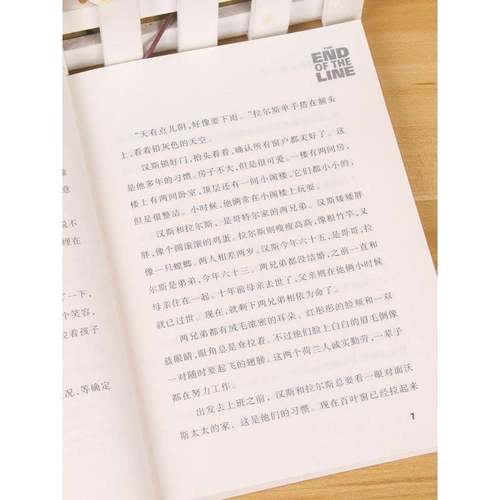 THE
END
OF THE
LINE
“天有点儿阴,好像要下雨。”拉尔斯单手搭在额头
上,看着铅灰色的天空。
汉斯锁好门,抬头看看,确认所有窗户都关好了。这
是他多年的习惯。房子不大,但是很可爱。一楼有两间房,
楼上有两间卧室,顶层还有一间小阁楼,它们都小小的,
但是很整洁。小时候,他俩常在小阁楼上玩耍。
汉斯和拉尔斯,是哥特尔家的两兄弟。汉斯矮矮胖
胖,像个圆滚滚的鸡蛋。拉尔斯则瘦瘦高高,像根竹竿,又
像一只螳螂。两人相差两岁。汉斯今年六十五,是哥哥,拉
尔斯是弟弟,今年六十三。两兄弟都没结婚,之前一直和
母亲住在一起。十年前母亲去世了,父亲则在他俩小时候
就已过世。现在,就剩下两兄弟相依为命了。
两兄弟都有绒毛浓密的耳朵、红彤彤的脸颊和一双
蓝眼睛,眼角总是耷拉着。不过他们脸上白白的眉毛倒像
一对随时要起飞的翅膀。这两个荷兰人诚实勤劳,一辈子
都在努力工作。
出发去上班之前,汉斯和拉尔斯总要看一眼对面沃
斯太太的家,这是他们的习惯。现在百叶窗已经拉起来
7
说不
理在
了一下,
个笑容,
拉着孩子
况,等确定